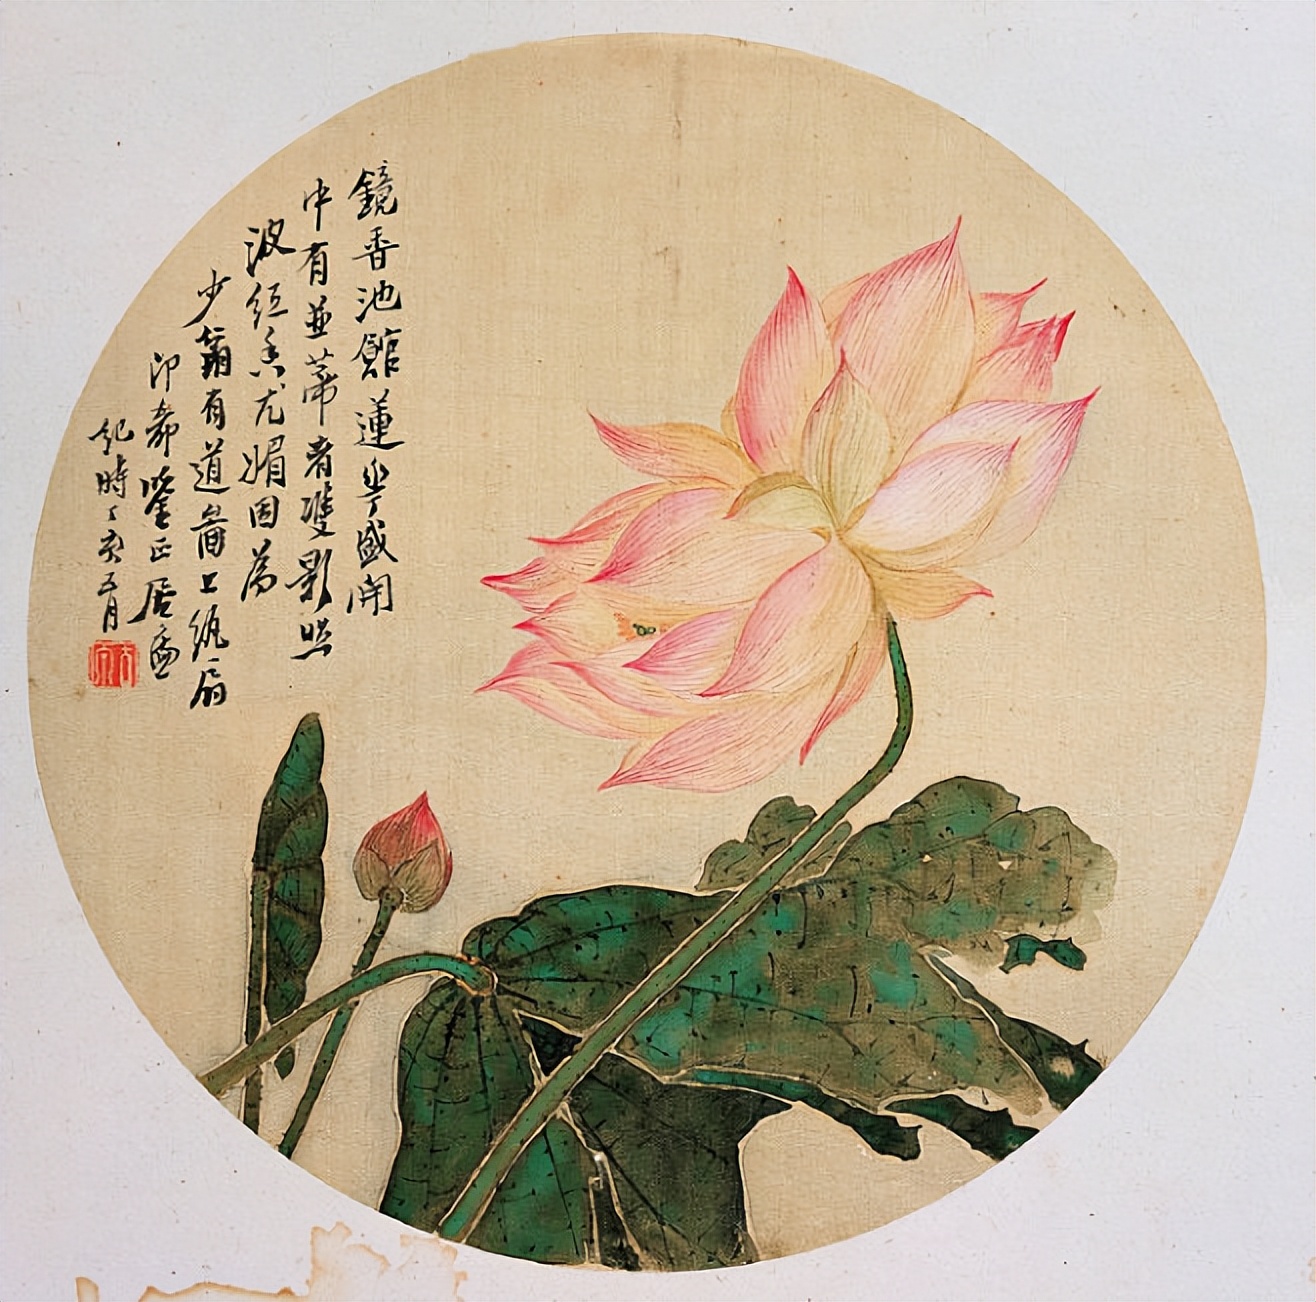 鏡香池館蓮華盛開
中有並蒂者雙影照
波紅香尤媚因為
少有道圖上紈扇
即希鑒正居廉
紀時丁亥五月